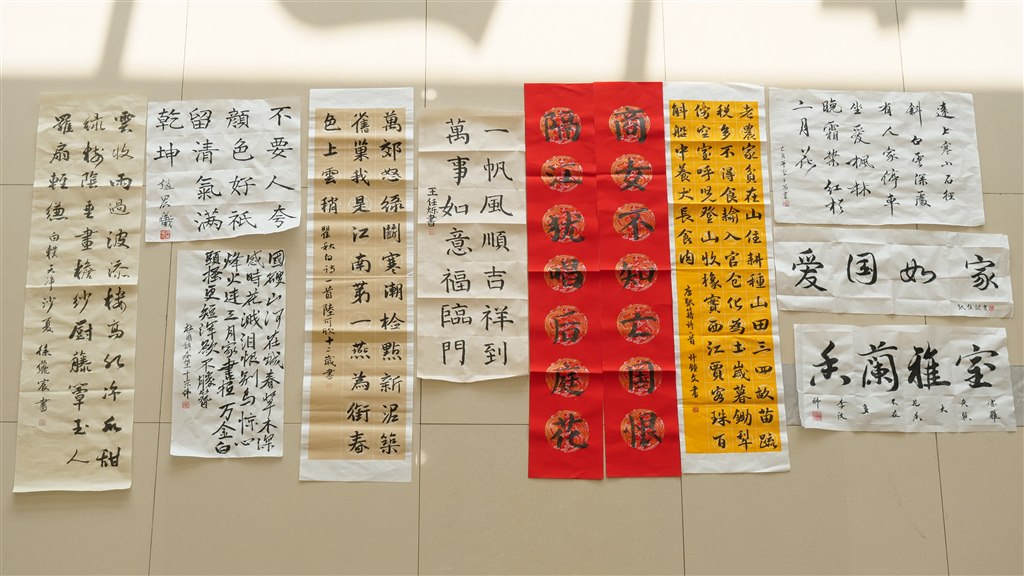 雲收雨過波添樓高水冷瓜甜
綠樹陰垂畫檐紗厨藤簟玉人
羅扇輕縑 白樸天淨沙夏 書
不要人夸
顏色好祇
留清氣滿
乾坤
國破山河在城春草木深
感時花濺淚恨別鳥驚心
烽火連三月家書抵万金白
頭搔更短渾欲不勝簪
萬郊怒綠鬪寒潮檢點新泥築
舊巢我是江南第一燕為銜春
色上雲梢 瞿秋白詩一首陸可欣十二歲書
一帆風順吉祥到
萬事如意福臨門
商女不知亡国恨
隔江犹唱后庭花
老農家貧在山住耕種山田三四畝苗疏
税多不得食輸入官仓化為土歲暮鋤犁
傍空室呼兒登山收橡實西江賈客珠百
斛船中養犬長食肉 唐張籍詩一首
遠上寒山石徑
斜白雲深處
有人家停車
坐愛楓林
晚霜葉紅於
二月花
愛国如家
室雅蘭香